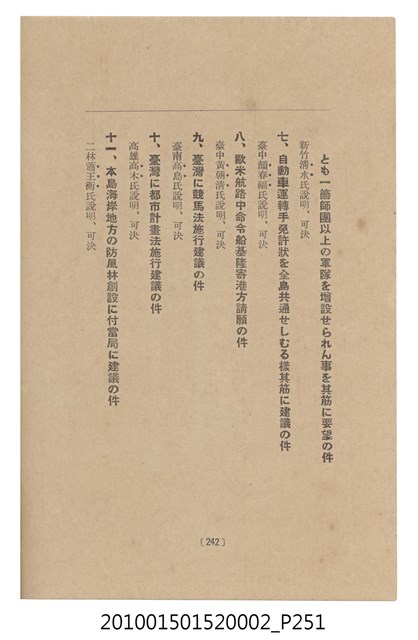 とも一箇師團以上の軍隊を增設せられん事を其筋に要望の件
新竹淸水氏說明、可決
七、自動車運轉手免許狀を全島共通せしむる樣其筋に建議の件
臺中顏春福氏說明、可決
八、歐米航路中命令船基隆寄港方請願の件
臺中黃朝淸氏說明、可決
九、臺灣に競馬法施行建議の件
臺南高島氏說明、可決
十、臺灣に都市計畫法施行建議の件
高雄高木氏說明、可決
十一、本島海岸地方の防風林創設に付當局に建議の件
二林蕭王衡氏說明、可決
〔242〕
201001501520002_P251